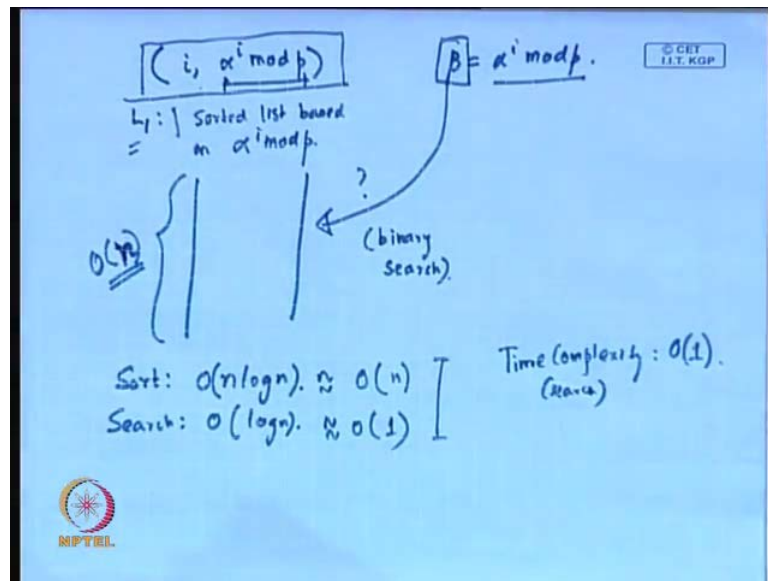 ( i, α^i mod p )
β = α^i mod p.
© CET
I.I.T. KGP
L₁: Sorted list based
on α^i mod p.
?
(binary
search).
O(n)
Sort: O(n log n). ≈ O(n)
Search: O(log n). ≈ O(1)
Time Complexity: O(1).
(search)
NPTEL